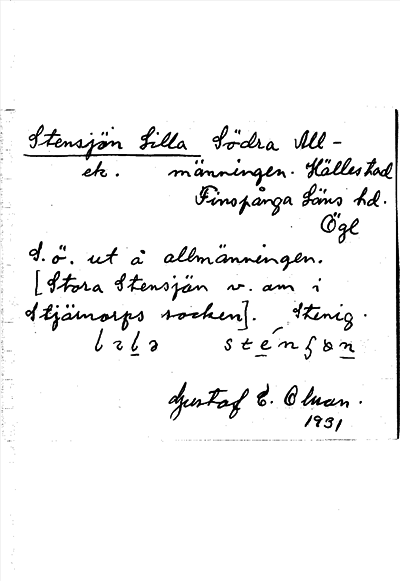 Stensjön Lilla Södra All-
ek. männingen. Hällestad
Finspånga Läns hd.
Ögl
S. ö. ut å allmänningen.
[Stora Stensjön v. om i
Stjärnorps socken]. Stenig.
Gustaf E. Olsson.
1931